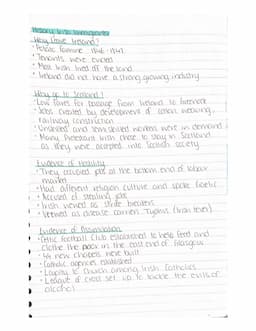 History Irish Immigrants
Why Leave Ireland?
• Potato famine 1846-1847
• Tenants were evicted
• Most Irish lived off the land
• Ireland did not have a strong growing industry
Why go to Scotland?
• Low fares for passage from Ireland to Greenock
• Jobs created by development of cotton weaving,
railway construction
• Unskilled and semi skilled workers were in demand
• Many Protestant Irish chose to stay in Scotland
as they were accepted into Scottish society
Evidence of Hostility
• They occupied jobs at the bottom end of labour
market
• Had different religion culture and spoke Gaelic
• Accused of stealing jobs
• Irish viewed as strike breakers
• Viewed as disease carriers Typhus (Irish fever)
Evidence of Assimilation
• Celtic Football Club established to help feed and
clothe the poor in the east end of Glasgow
• 44 new chapels were built
• Catholic agencies established
• Loyalty to church among Irish Catholics
• League of cross set up to tackle the evils of
alcohol